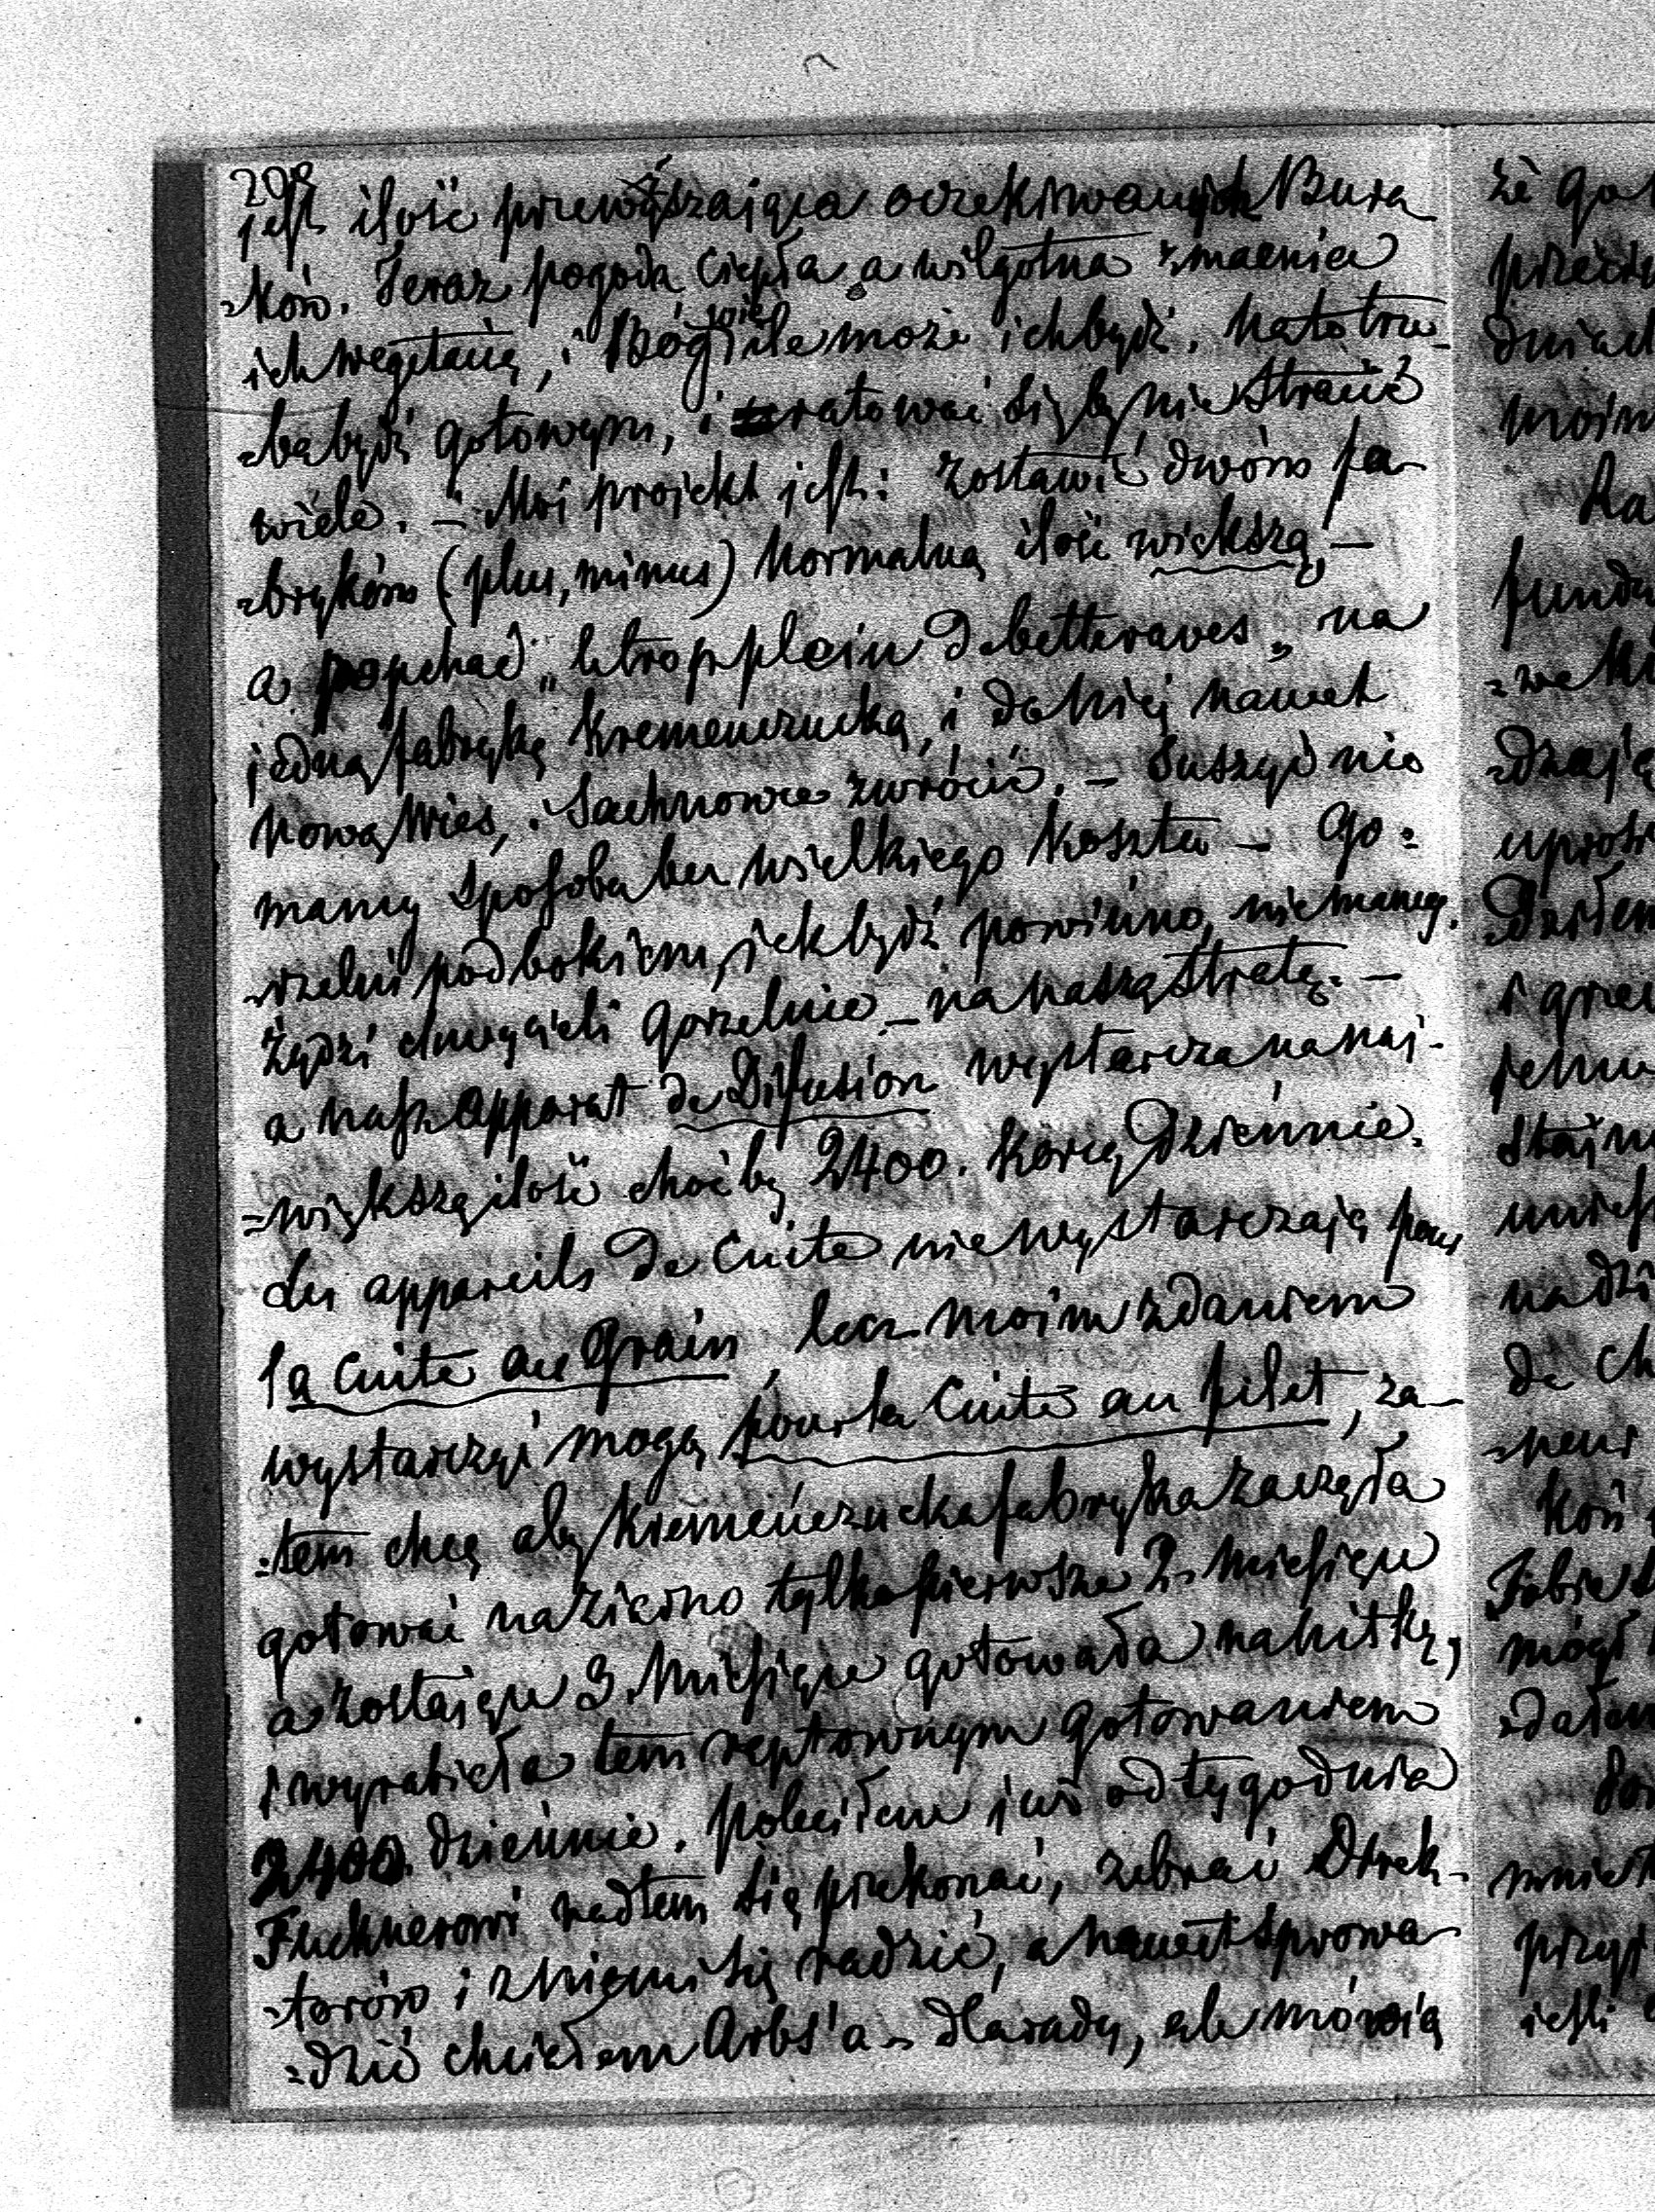 208
jest ilość przewyższająca oczekiwanych Bura
-ków. Teraz pogoda ciepła a wilgotna zmacnia
ich wegetacią, i Bóg wie ile może ich bydź. Na to trze-
-ba bydź gotowym, i ratować się by nie stracić
wiele. — Mój projekt jest: zostawić dwóm fa-
-brykóm (plus, minus) normalną ilość większą, —
a popchać „le trop plein de betteraves„ na
jedną fabrykę Kremenczucką, i do niej nawet
Nową Wieś, i Sachnowce zwrócić. — Suszyć nie
mamy sposobu bez wielkiego kosztu — Go-
-rzelni pod bokiem, jak bydź powinno, nie mamy.
Żydzi chwycieli gorzelnie — na naszą stratę. —
a nasz apparat de Difusion wystarcza na naj-
-większą ilość choćby 2400. korcy dziennie.
Les appareils de Cuite nie wystarczają pour
la Cuite au Grain, lecz moim zdaniem
wystarczyć mogą pour la Cuite au filet, za-
-tem chcę aby Kremenczucka fabryka zaczęła
gotować na ziarno tylko pierwsze 2. Miesięcy
a zostające 3. Miesiące gotowała na nitkę,
i wyrabiała tem raptownym gotowaniem
2400. dziennie. Poleciłem już od tygodnia
Flucknerowi nad tem się przekonać, zebrać Direk-
-torów i z niemi się radzić, a nawet sprowa-
-dzić chciałem Arbs'a — dla rady, ale mówią
że
moim
de